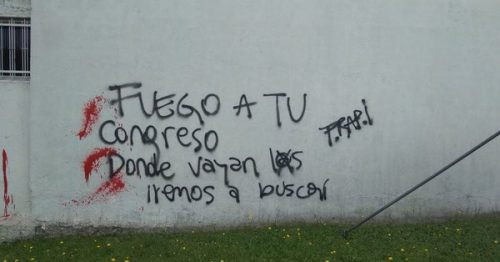 FUEGO A TU
Congreso
Donde vayan lxs
iremos a buscar
F.RAP.I